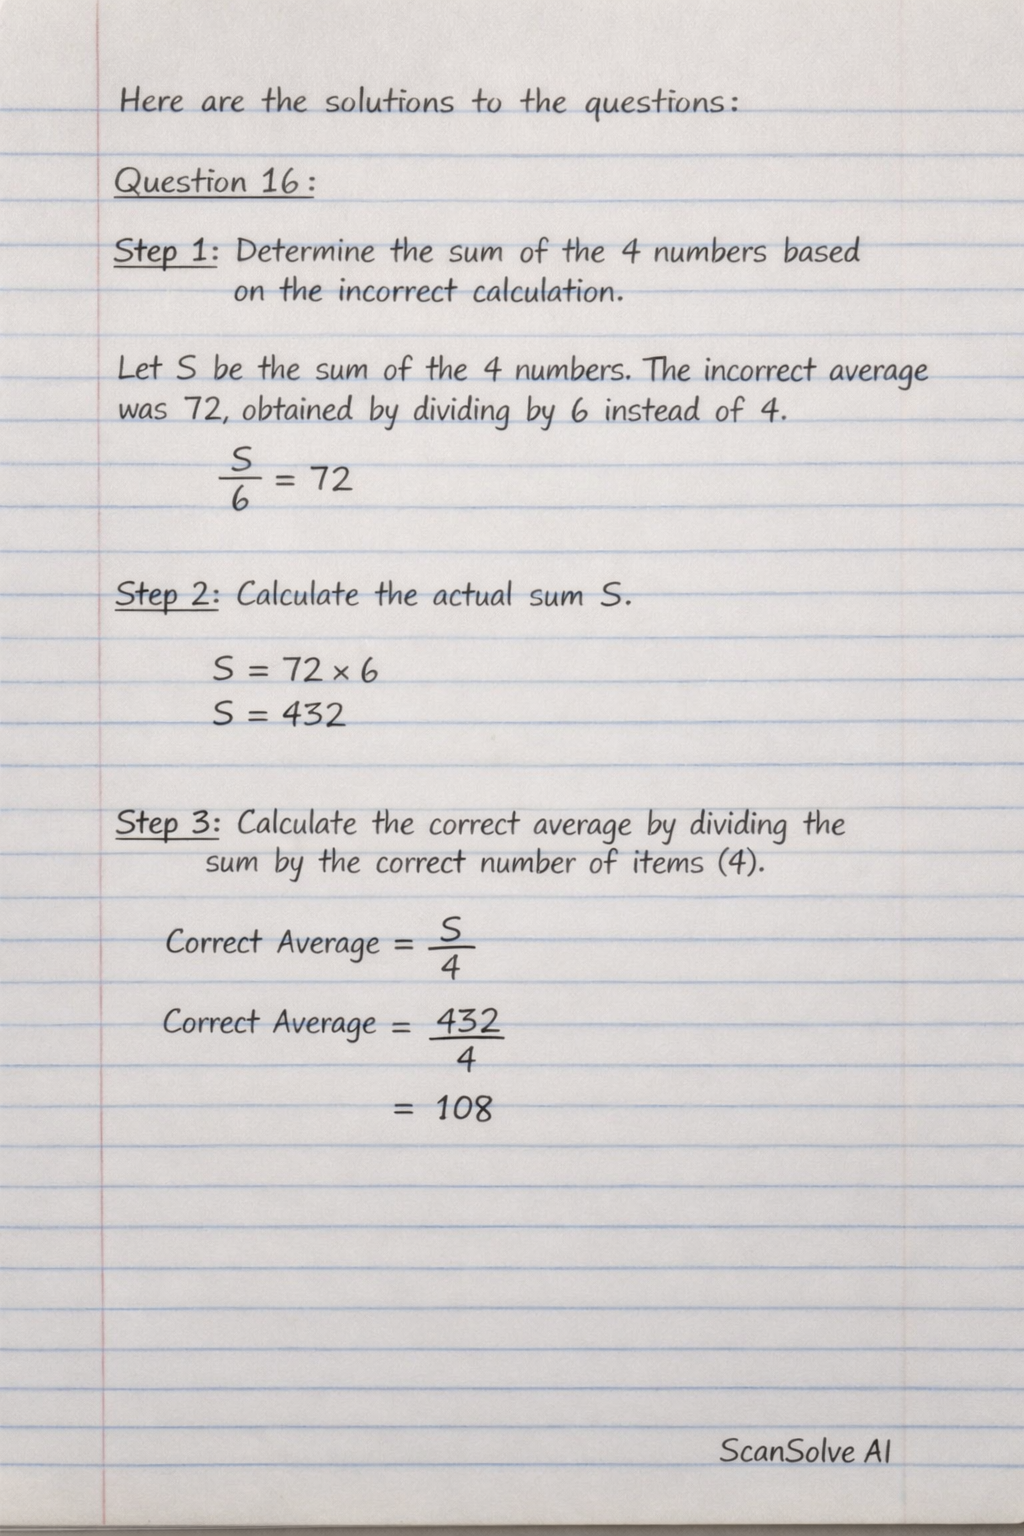 Here are the solutions to the questions:
Question 16:
Step 1: Determine the sum of the 4 numbers based
on the incorrect calculation.
Let S be the sum of the 4 numbers. The incorrect average
was 72, obtained by dividing by 6 instead of 4.
S/6 = 72
Step 2: Calculate the actual sum S.
S = 72 × 6
S = 432
Step 3: Calculate the correct average by dividing the
sum by the correct number of items (4).
Correct Average = S/4
Correct Average = 432/4
= 108
ScanSolve AI